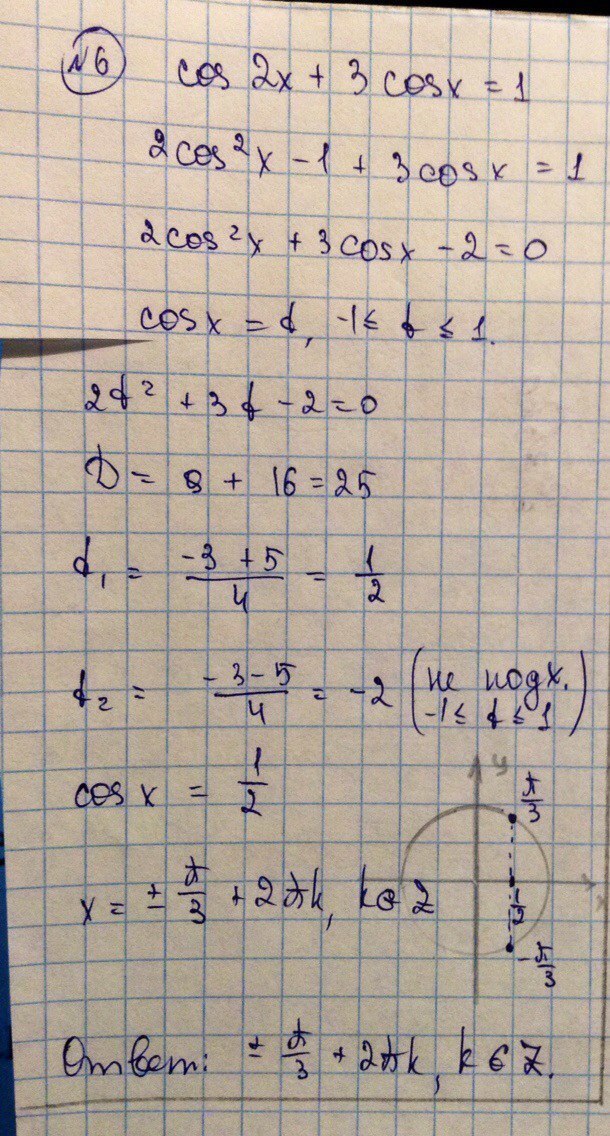 №6 cos 2x + 3 cosx = 1
2cos²x - 1 + 3cosx = 1
2cos²x + 3cosx - 2 = 0
cosx = t, -1 ≤ t ≤ 1.
2t² + 3t - 2 = 0
D = 9 + 16 = 25
t₁ = (-3 + 5)/4 = 1/2
t₂ = (-3 - 5)/4 = -2 (не подх. -1 ≤ t ≤ 1)
cos x = 1/2
x = ± π/3 + 2πk, k ∈ Z
y
π/3
x
1/2
-π/3
Ответ: ± π/3 + 2πk, k ∈ Z.